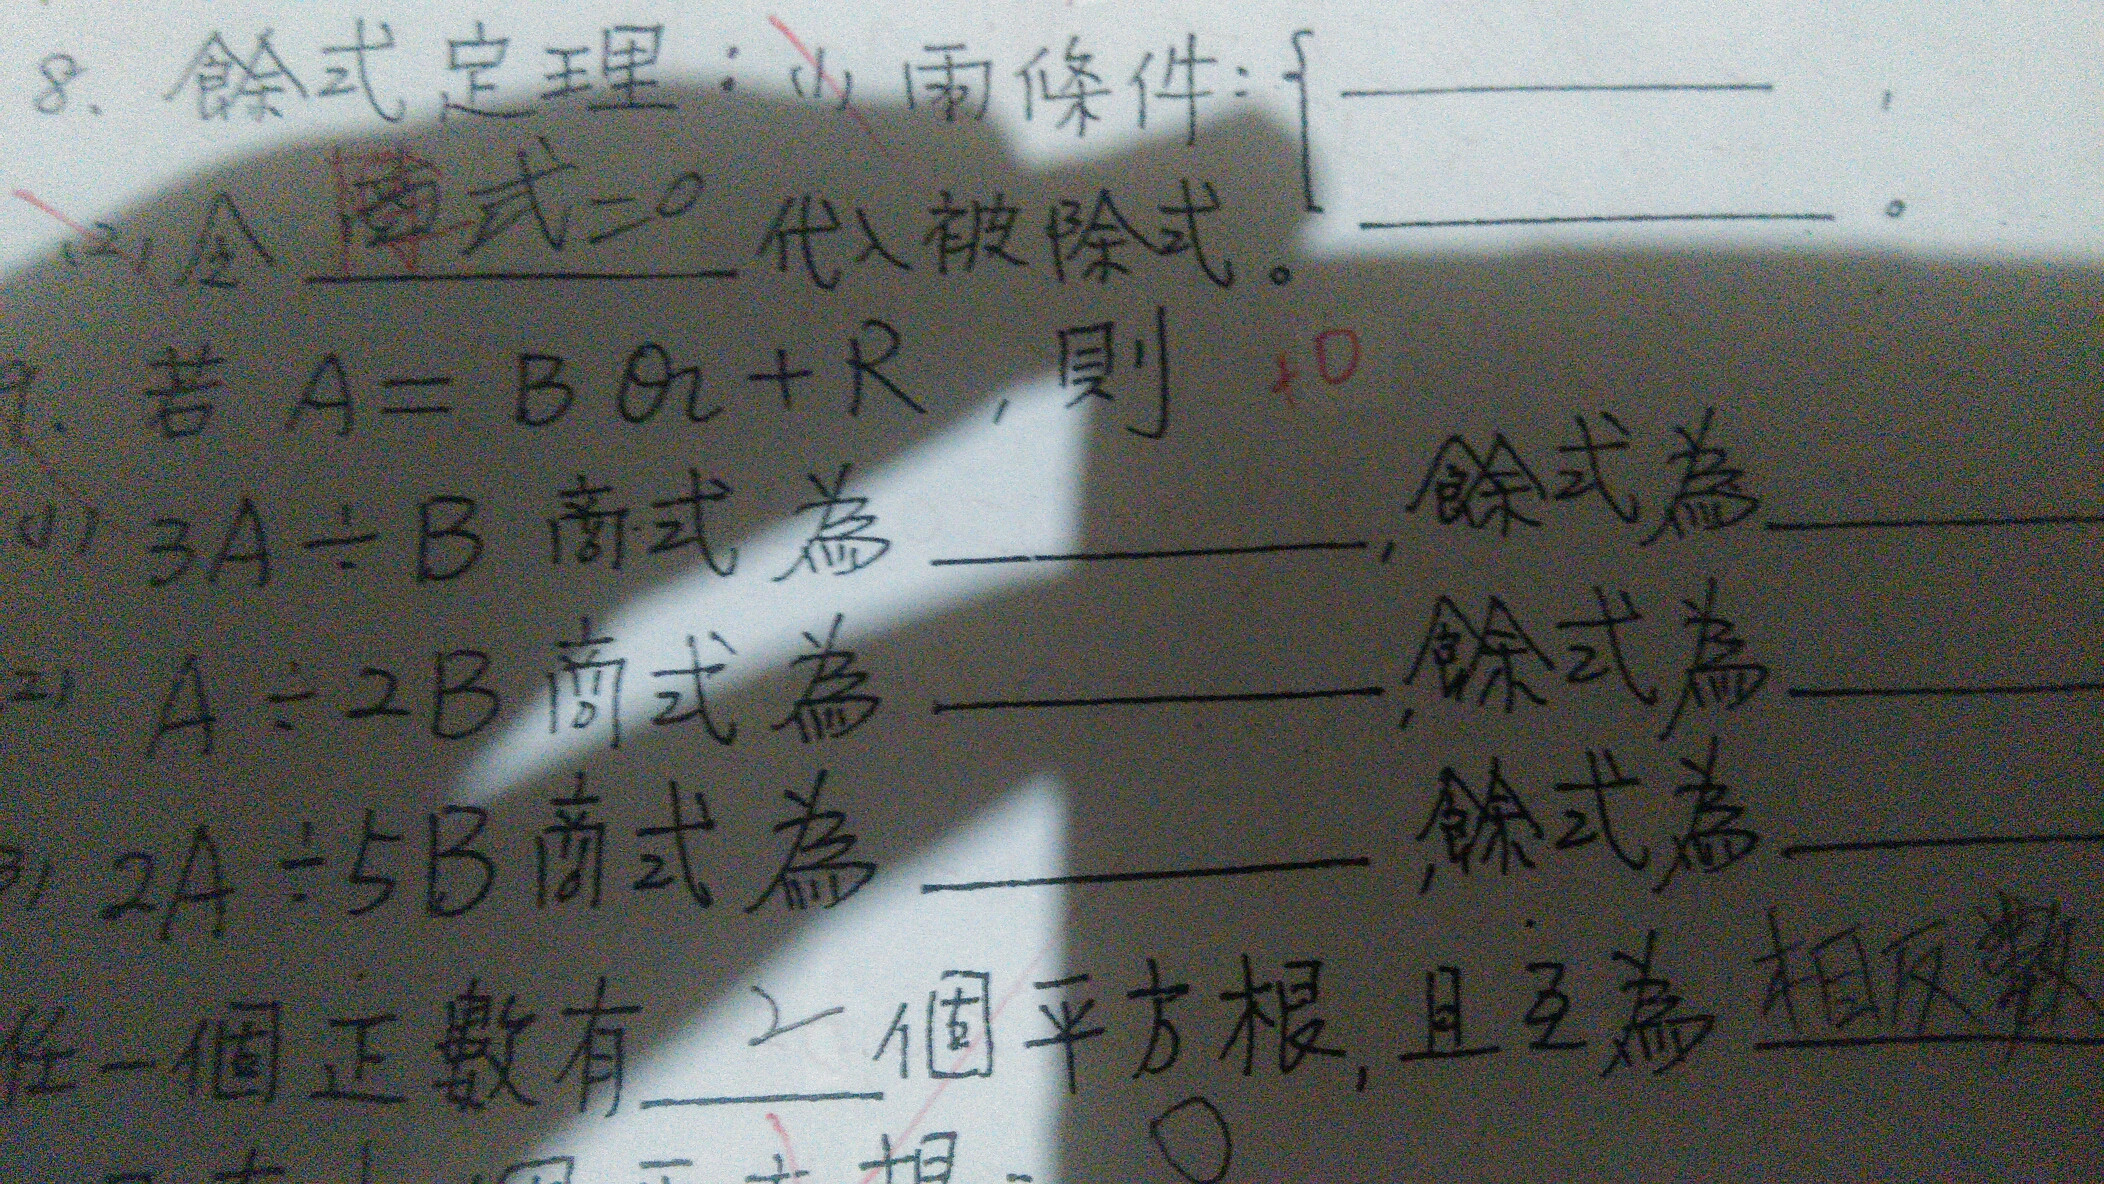 8. 餘式定理：(1) 兩條件：{ ________ ，
________ 。
(2) 令 商式=0 代入被除式。
9. 若 A = BQ + R，則 +0
(1) 3A ÷ B 商式為 ________，餘式為 ________
(2) A ÷ 2B 商式為 ________，餘式為 ________
(3) 2A ÷ 5B 商式為 ________，餘式為 ________
任一個正數有 2 個平方根，且互為 相反數
0